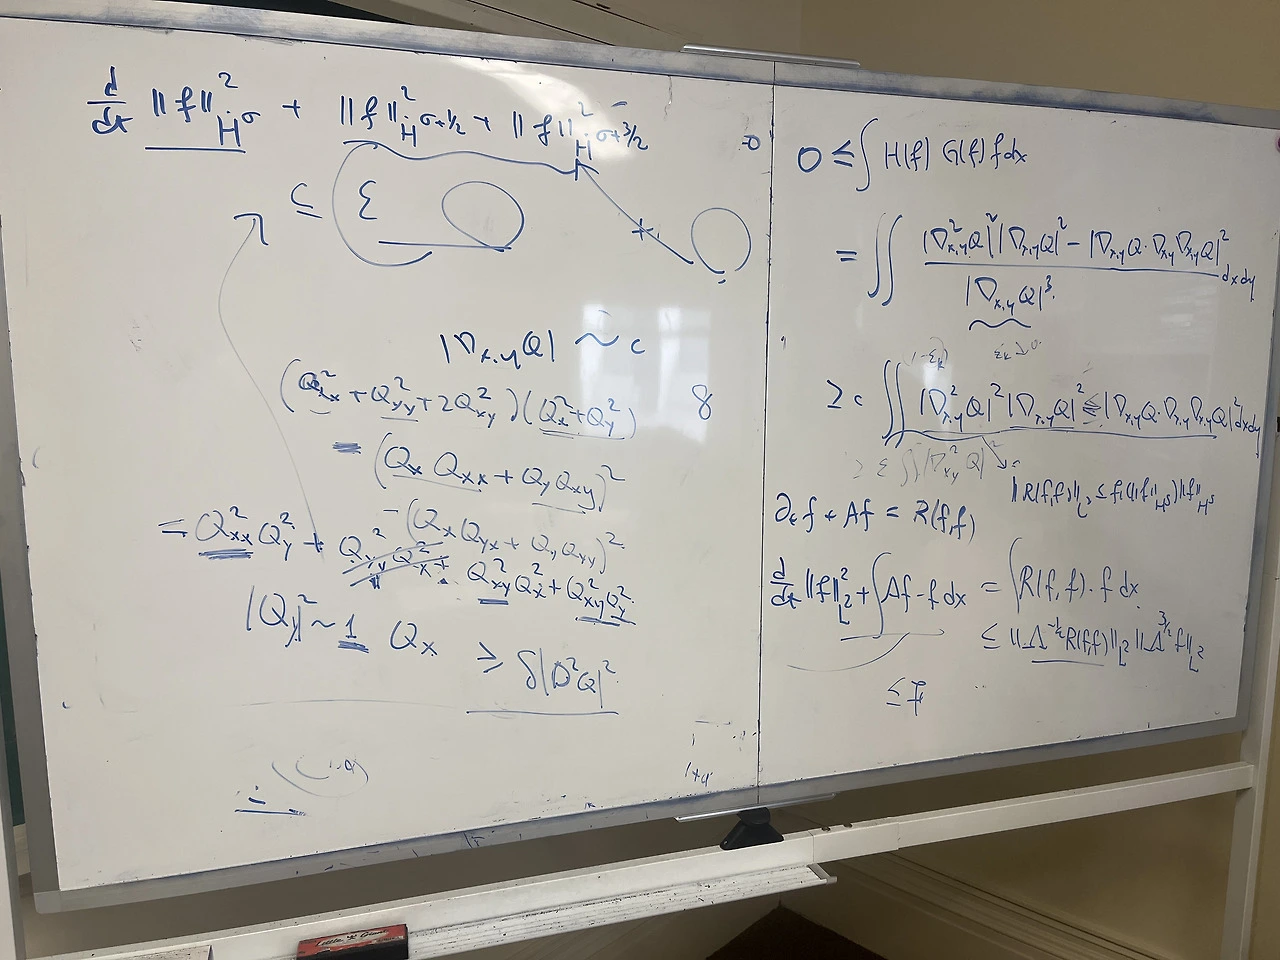 d/dt ||f||²_{Ḣ^σ} + ||f||²_{Ḣ^{σ+1/2}} + ||f||²_{Ḣ^{σ+3/2}}
≤ ε
|∇_{x,y}Q| ~ c
(Q²_{xx} + Q²_{yy} + 2Q²_{xy})(Q²_x + Q²_y)
8
= (Q_x Q_{xx} + Q_y Q_{xy})²
-(Q_x Q_{yx} + Q_y Q_{yy})²
= Q²_{xx} Q²_y + Q²_{yy} Q²_x + Q²_{xy} Q²_x + Q²_{xy} Q²_y
|Q_y|² ~ 1 Q_x ≥ δ|D²Q|²
1+a
0 ≤ ∫ H(f) G(f) f dx
= ∬ (|∇²_{x,y}Q|² |∇_{x,y}Q|² - |∇_{x,y}Q · ∇_{x,y}∇_{x,y}Q|²) / |∇_{x,y}Q|³ dxdy
(1-ε_k) ε_k ↓ 0
≥ c ∬ |∇²_{x,y}Q|² |∇_{x,y}Q|² ≤ |∇_{x,y}Q · ∇_{x,y}∇_{x,y}Q|² dxdy
≥ ε ∬ |∇²_{x,y}Q|²
||R(f,f)||_{L²} ≤ f(||f||_{H^s}) ||f||_{H^s}
∂_t f + Af = R(f,f)
d/dt ||f||²_{L²} + ∫ Af · f dx = ∫ R(f,f) · f dx
≤ ||Λ^{-1/2} R(f,f)||_{L²} ||Λ^{3/2} f||_{L²}
≤ F